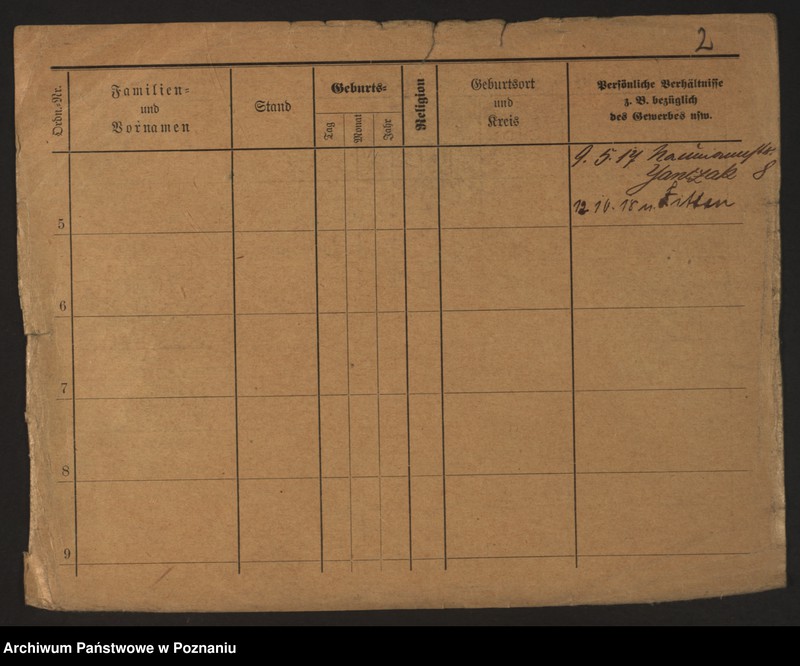 2
Ordn.-Nr.
Familien-
und
Vornamen
Stand
Geburts-
Tag
Monat
Jahr
Religion
Geburtsort
und
Kreis
Persönliche Verhältnisse
z. B. bezüglich
des Gewerbes usw.
9. 5. 17 Naumannstr.
8
5
6
7
8
9
Archiwum Państwowe w Poznaniu